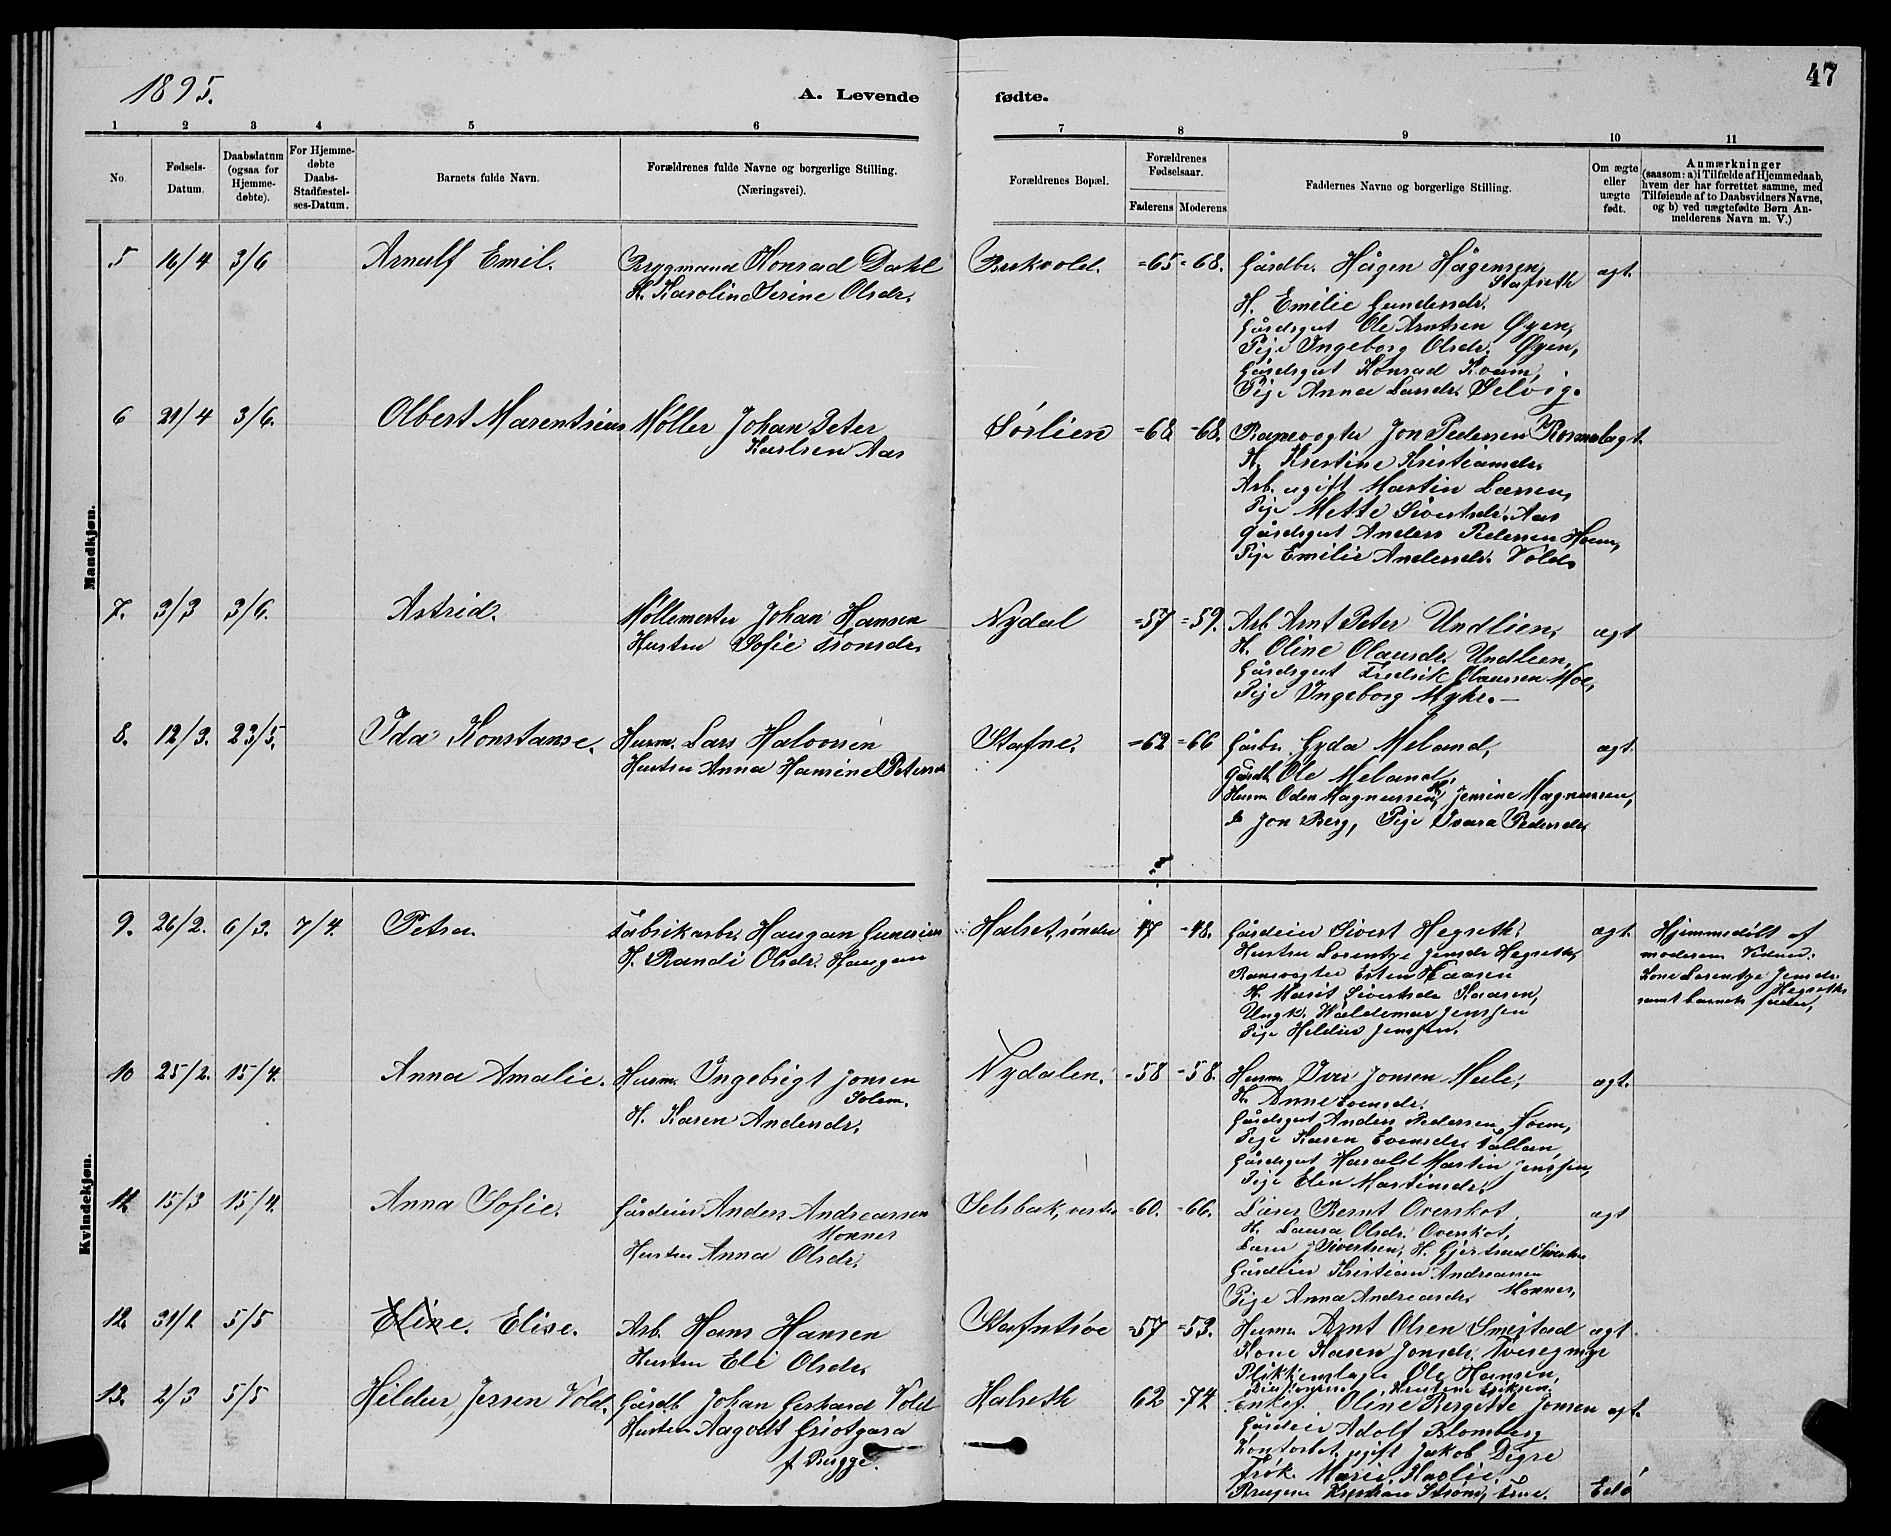 1895.
A. Levende fødte.
47
1 2 3 4 5 6 7 8 9 10 11
No.
Fødsels-Datum.
Daabsdatum (ogsaa for Hjemmedøbte).
For Hjemmedøbte Daabs-Stadfæstelses-Datum.
Barnets fulde Navn.
Forældrenes fulde Navne og borgerlige Stilling. (Næringsvei).
Forældrenes Bopæl.
Forældrenes Fødselsaar.
Faderens Moderens
Faddernes Navne og borgerlige Stilling.
Om ægte eller uægte født.
Anmærkninger
(saasom: a) i Tilfælde af Hjemmedaab,
hvem der har forrettet samme, med
Tilføiende af to Daabsvidners Navne,
og b) ved uægtefødte Børn Anmelderens Navn m. V.)
Mandkjøn.
5 16/4 3/6 Arnulf Emil. Brygmand Konrad Dahl
H. Karoline Serine Olsdr.
-65 -68. Gårdbr. Hågen Hågensen
Stafseth
ægt.
H. Emilie Gundersdr.
Gårdsgut Ole Arntsen Øyen,
Pige Ingeborg Olsdr. Øyen,
Gårdsgut Konrad Kvam,
Pige Anna Larsdr. Selvig.
6 21/4 3/6. Olbert Marentsius Møller Johan Peter
Karlsen Aas
Sørlien -68 -68. Banevogter Jon Pedersen ægt.
H. Kristine Kristiansdr.
Arb. ugift Martin Larsen,
Pige Mette Sivertsdr. Aas
Gårdsgut Anders Pedersen Hoem,
Pige Emilie Andersdr. Vold.
7. 3/3 3/6. Astrid. Møllemester Johan Hansen
Hustru Sofie Tronsdr.
Nydal -57 -59. Arb. Arnt Peter Undlien,
ægt
H. Oline Olausdr. Undlien,
Gårdsgut Fredrik Olaussen Moe,
Pige Ingeborg Myhr.
8. 12/3. 23/5. Ida Konstanse. Husm. Lars Halvorsen
Hustru Anna Hansine Petersd
Stafne. -62 -66 Gårdbr. Gyda Meland,
ægt
Gårdb. Ole Meland,
Husm. Oden Magnussen, H. Jensine Magnussen,
Jon Berg, Pige Ivara Pedersdr.
Kvindekjøn.
9. 26/2. 6/3. 7/4. Petra. Fabrikarb. Haagan Gunerius
H. Randi Olsdr. Haugan
Halset, søndre 47 -48. Gårdeier Sivert Hegseth. ægt. Hjemmedøbt af
Hustru Lorentze Jensdr. Hegseth,
Banevogter Esten Kaasen
H. Marit Sivertsdr. Kaasen,
Ungk. Waldemar Jenssen
Pige Hildur Jenssen.
moderen Vidner:
Kone Lorentze Jensdr.
Hegseth
samt barnets fader,
10 25/2. 15/4. Anna Amalie. Husm. Ingebrigt Jonsen
Solem.
H. Karen Andersdr.
Nydalen. -58 -58. Husm. Iver Jonsen Mele,
ægt.
H. Anne Evensdr.
Gårdsgut Anders Pedersen Hoem,
Pige Karen Evensdr.
Gårdsgut Harald Martin Jenssen,
Pige Elen Martinsdr.
11 15/3 15/4. Anna Sofie. Gårdeier Anders Andreassen
Moxnes
Hustru Anna Olsdr.
Selsbak, vestre -60. -66. Bernt Overskot,
ægt
H. Laura Olsdr. Overskot,
Sivertsen, H. Gjertrud Sivertsen
Gårdeier Kristian Andreassen
Pige Anna Andreasdr. Moxnes,
12. 31/1 5/5 Eline. Elise. Arb. Hans Hansen
Hustru Eli Olsdr.
-57 -53. Husm. Arnt Olsen Smestad ægt
Kone Karen Jonsdr.
Ole Hansen,
13. 2/3 5/5 Hildur Jessen Vold. Gårdb. Johan Gerhard Vold
Hustru Aagodt Griotgara
f. Bugge.
Halseth 62 -74 Enkef. Oline Bergette Jonsen ægt.
Gårdeier Adolf Blomberg
ugift Jakob Digre
Frøk. Marie